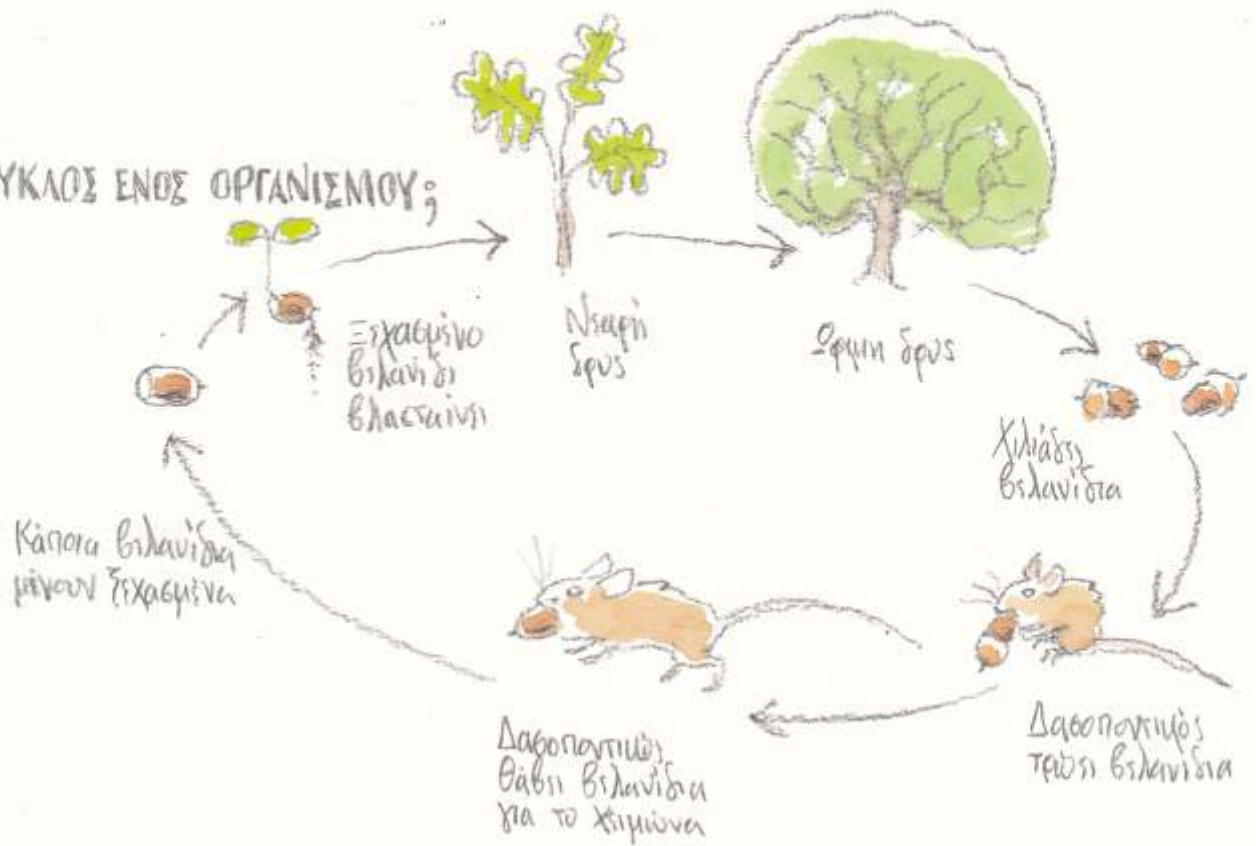 ΥΚΛΟΣ ΕΝΟΣ ΟΡΓΑΝΙΣΜΟΥ;
Ξεχασμένο
βελανίδι
βλασταίνει
Νεαρή
δρυς
Ώριμη δρυς
Χιλιάδες
βελανίδια
Δασοποντικός
τρώει βελανίδια
Δασοποντικός
θάβει βελανίδια
για το χειμώνα
Κάποια βελανίδια
μένουν ξεχασμένα